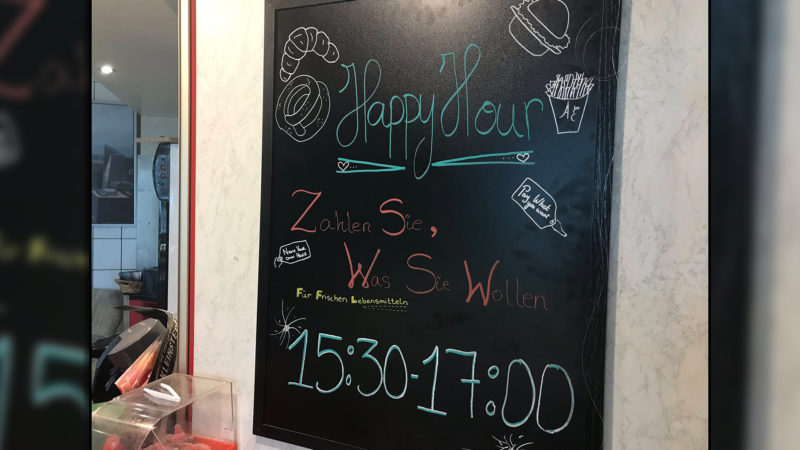 Happy Hour
A E
Pay What
you want
Zahlen Sie,
Name Your
own Price
Was Sie Wollen
Für Frischen Lebensmitteln
15:30-17:00